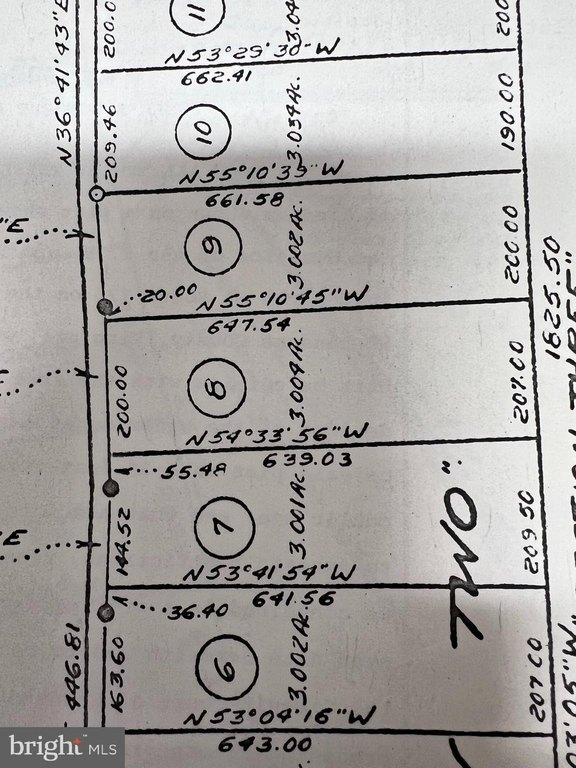 11
3.04
200.0
200
N36°41'43"E
N53°29'30"W
662.41
209.46
10
3.034Ac.
190.00
N55°10'39"W
661.58
"E
9
3.002Ac.
200.00
20.00
N55°10'45"W
647.54
1825.50
200.00
8
3.004Ac.
207.00
N54°33'56"W
639.03
55.48
144.52
7
3.001Ac.
209.50
TWO"
E
N53°41'54"W
641.56
36.40
446.81
163.60
6
3.002Ac.
207.00
03'05"W
N53°04'16"W
643.00
bright MLS